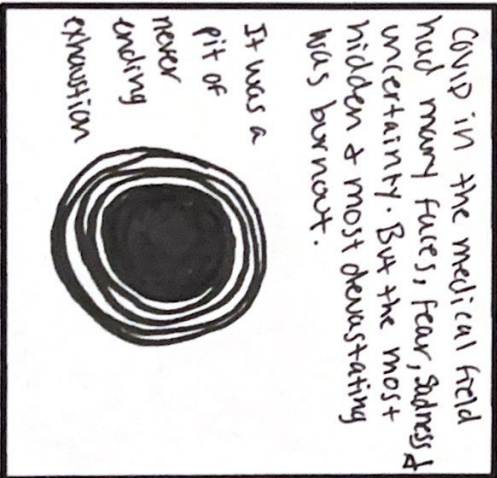 Covid in the medical field
had many faces, fear, sadness &
uncertainty. But the most
hidden & most devastating
was burnout.
It was a
pit of
never
ending
exhaustion